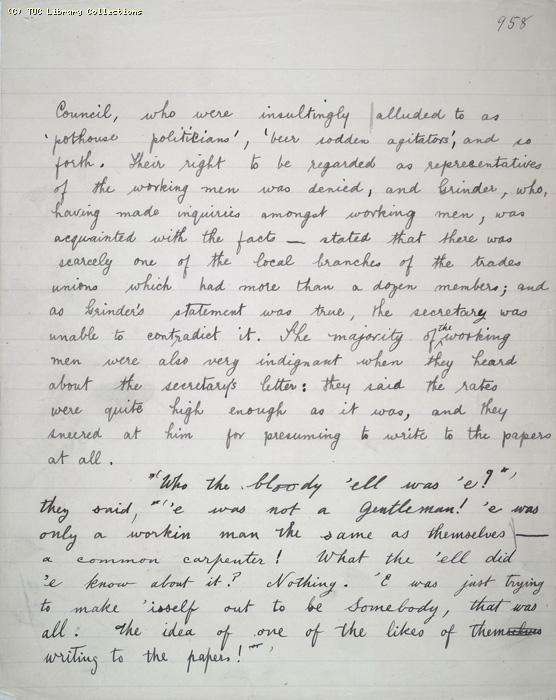 (C) TUC Library Collections
958
Council, who were insultingly alluded to as
'pothouse politicians', 'beer sodden agitators', and so
forth. Their right to be regarded as representatives
of the working men was denied, and Grinder, who,
having made inquiries amongst working men, was
acquainted with the facts — stated that there was
scarcely one of the local branches of the trades
unions which had more than a dozen members; and
as Grinder's statement was true, the secretary was
unable to contradict it. The majority of the working
men were also very indignant when they heard
about the secretary's letter: they said the rates
were quite high enough as it was, and they
sneered at him for presuming to write to the papers
at all.
"'Who the bloody 'ell was 'e?"'
they said, "''e was not a Gentleman! 'e was
only a workin man the same as themselves —
a common carpenter! What the 'ell did
'e know about it? Nothing. 'E was just trying
to make 'isself out to be Somebody, that was
all. The idea of one of the likes of them
writing to the papers!"'